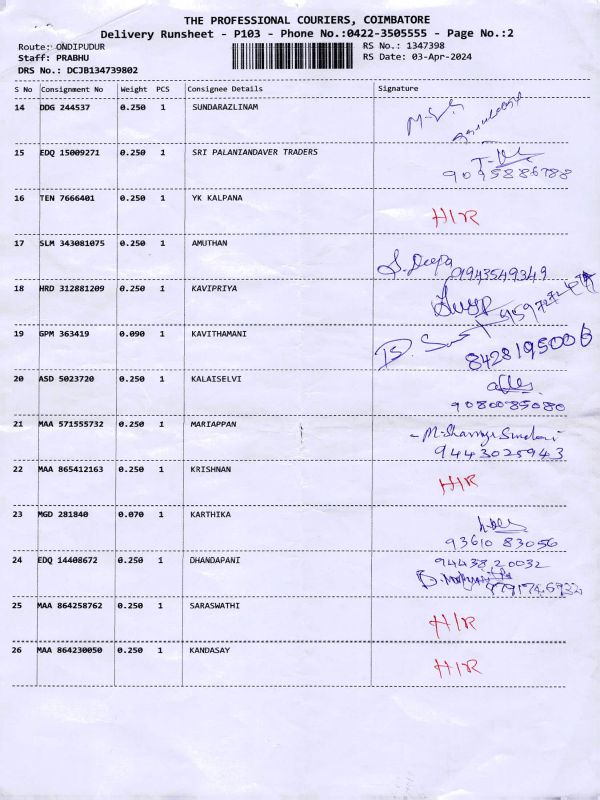 THE PROFESSIONAL COURIERS, COIMBATORE
Delivery Runsheet - P103 - Phone No.:0422-3505555 - Page No.:2
Route: ONDIPUDUR RS No.: 1347398
Staff: PRABHU RS Date: 03-Apr-2024
DRS No.: DCJB134739802
S No Consignment No Weight PCS Consignee Details Signature
14 DDG 244537 0.250 1 SUNDARAZLINAM
15 EDQ 15009271 0.250 1 SRI PALANIANDAVER TRADERS
9095886788
16 TEN 7666401 0.250 1 YK KALPANA H/R
17 SLM 343081075 0.250 1 AMUTHAN
S. Deepa 01943549349
18 HRD 312881209 0.250 1 KAVIPRIYA
19 GPM 363419 0.090 1 KAVITHAMANI
8428195006
20 ASD 5023720 0.250 1 KALAISELVI
9080085080
21 MAA 571555732 0.250 1 MARIAPPAN
9443025943
22 MAA 865412163 0.250 1 KRISHNAN H/R
23 MGD 281840 0.070 1 KARTHIKA
93610 83056
24 EDQ 14408672 0.250 1 DHANDAPANI 9443820032
25 MAA 864258762 0.250 1 SARASWATHI H/R
26 MAA 864230050 0.250 1 KANDASAY H/R